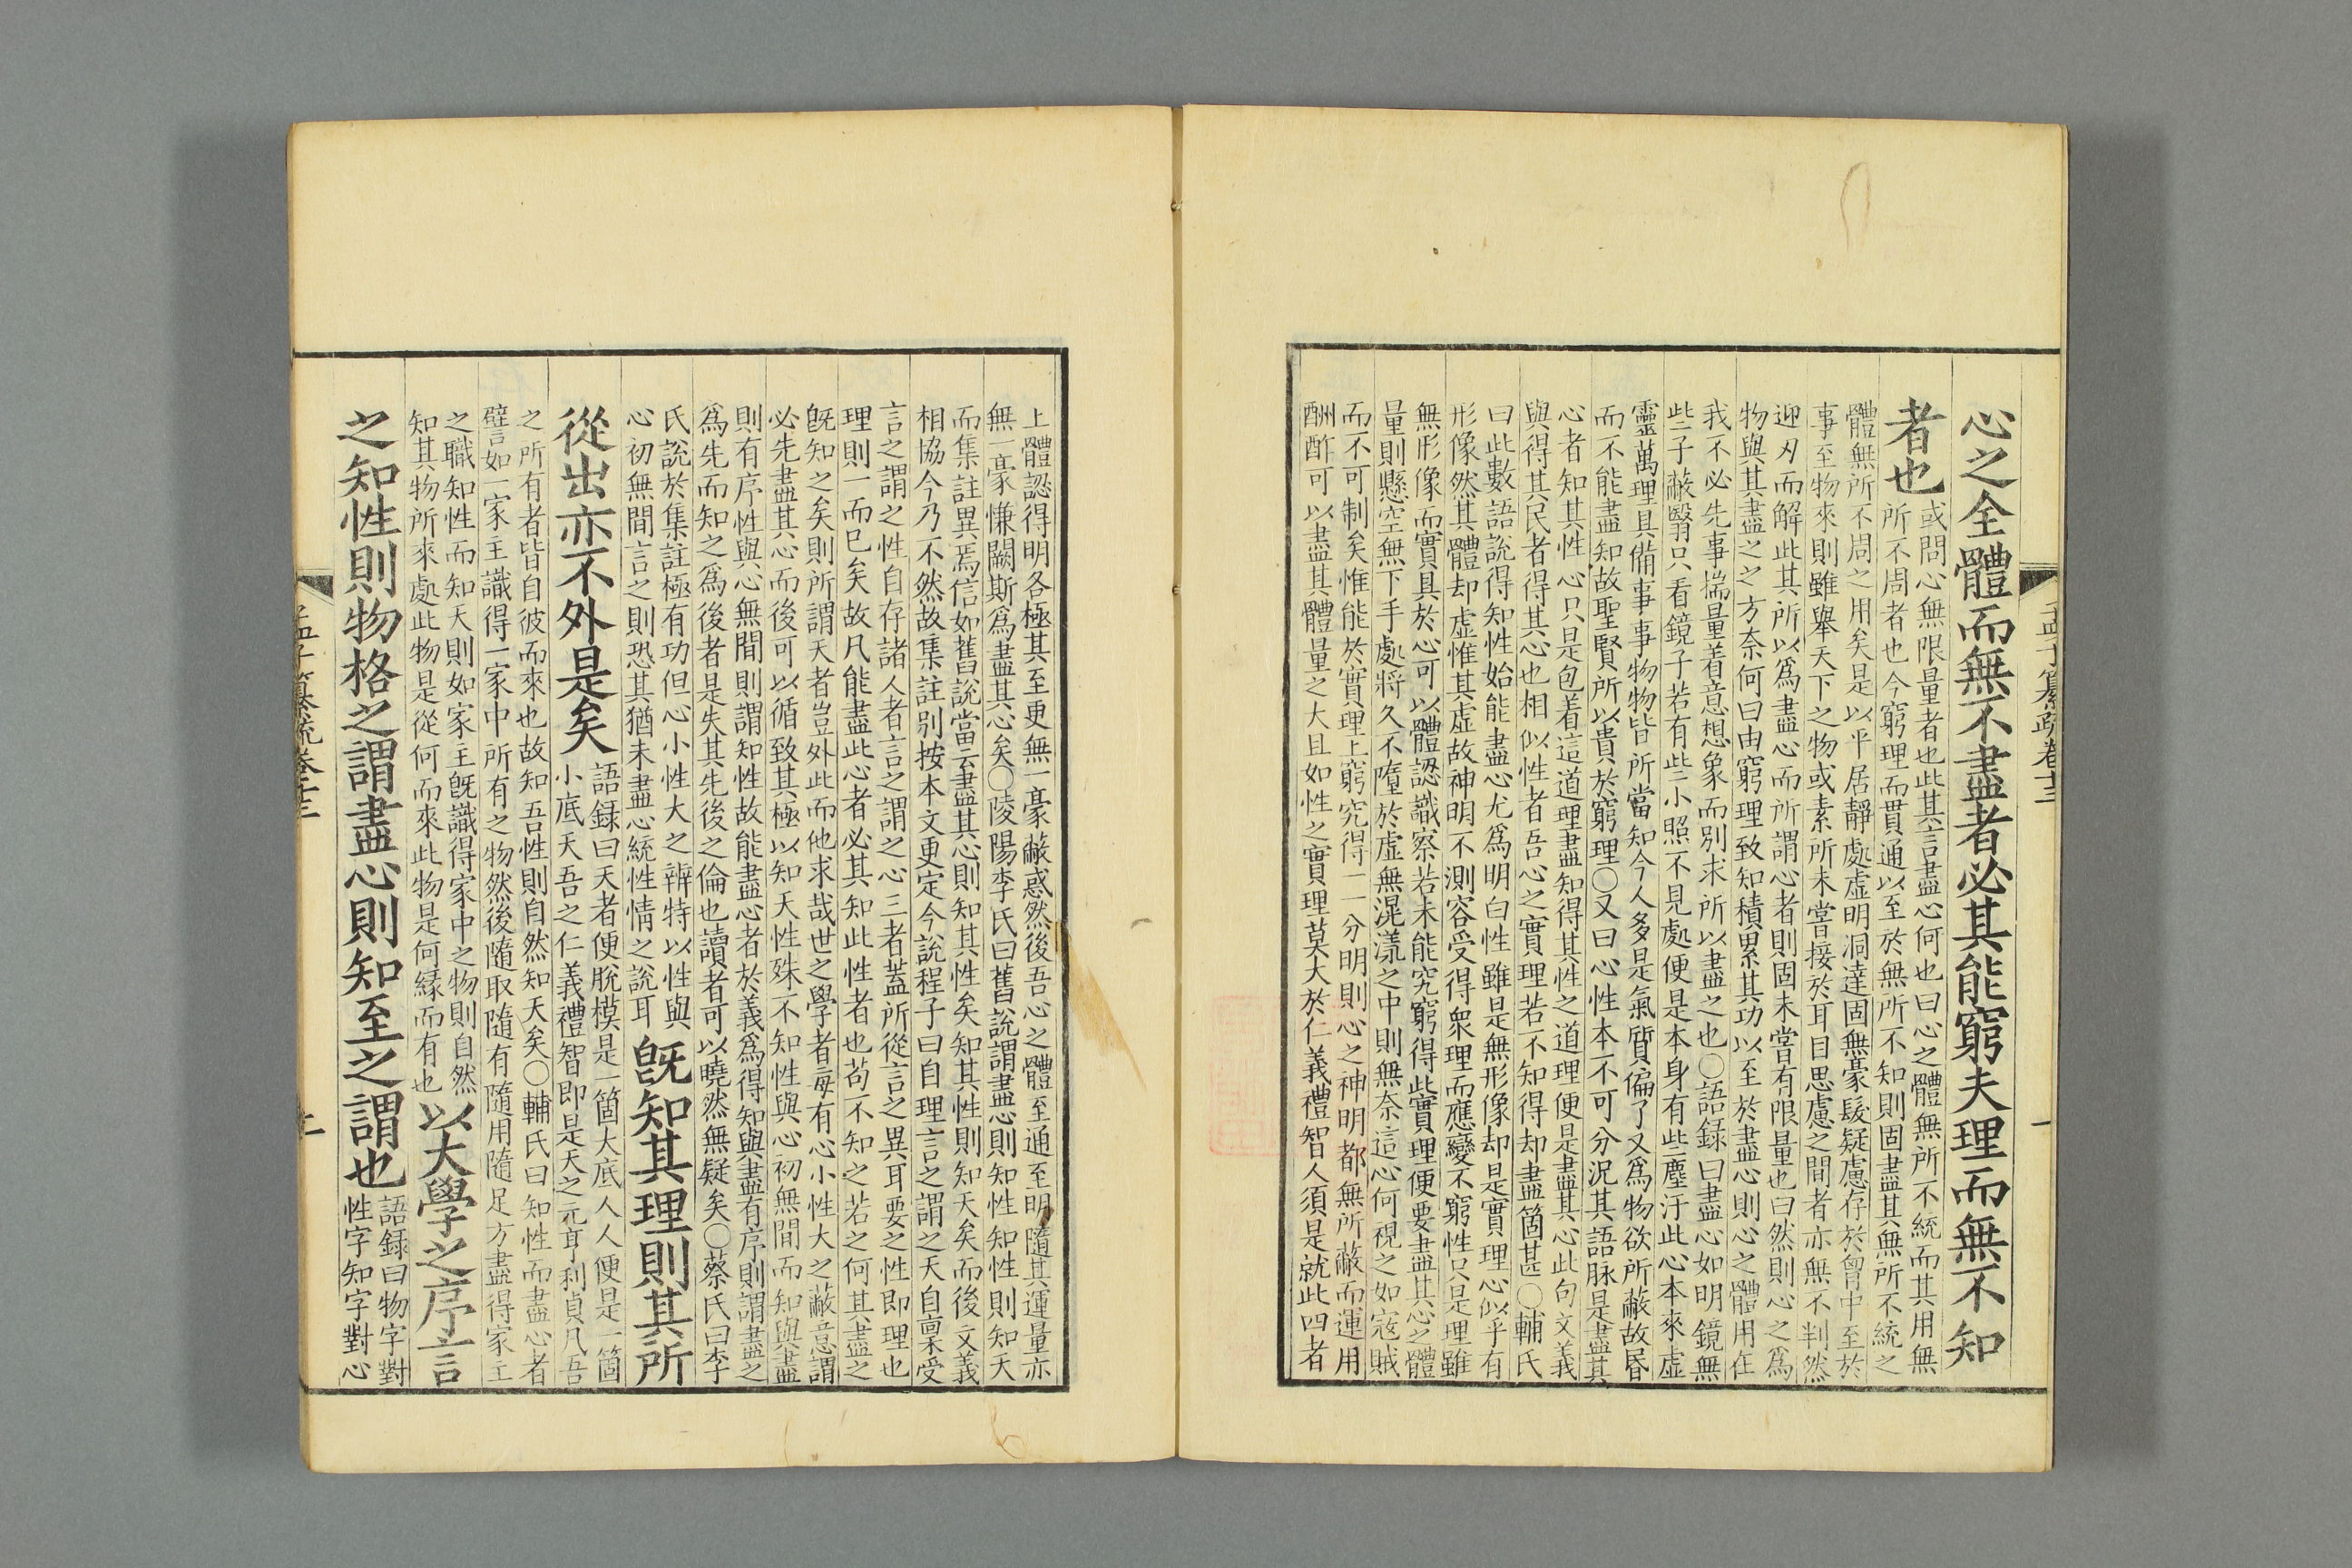 心之全體而無不盡者必其能窮夫理而無不知
者也
或問心無限量者也此其言盡心何也曰心之體無所不統而其用無
所不周者也今窮理而貫通以至於無所不知則固盡其無所不統之
體無所不周之用矣是以平居靜處虛明洞達固無豪髮疑慮存於胷中至於
事至物來則雖舉天下之物或素所未嘗接於耳目思慮之間者亦無不判然
迎刃而解此其所以爲盡心而所謂心者則固未嘗有限量也曰然則心之爲
物與其盡之之方奈何曰由窮理致知積累其功以至於盡心則心之體用在
我不必先事揣量着意想象而別求所以盡之也○語録曰盡心如明鏡無
些子蔽翳只看鏡子若有些小照不見處便是本身有些塵汙此心本來虛
靈萬理具備事事物物皆所當知今人多是氣質偏了又爲物欲所蔽故昏
而不能盡知故聖賢所以貴於窮理○又曰心性本不可分況其語脉是盡其
心者知其性心只是包着這道理盡知得其性之道理便是盡其心此句文義
與得其民者得其心也相似性者吾心之實理若不知得却盡箇甚○輔氏
曰此數語說得知性始能盡心尤爲明白性雖是無形像却是實理心似乎有
形像然其體却虛惟其虛故神明不測容受得衆理而應變不窮性只是理雖
無形像而實具於心可以體認識察若未能究窮得此實理便要盡其心之體
量則懸空無下手處將久不墮於虛無滉瀁之中則無奈這心何視之如寇賊
而不可制矣惟能於實理上窮究得一一分明則心之神明都無所蔽而運用
酬酢可以盡其體量之大且如性之實理莫大於仁義禮智人須是就此四者
孟子纂疏卷十三
一
上體認得明各極其至更無一豪蔽惑然後吾心之體至通至明隨其運量亦
無一豪慊闕斯爲盡其心矣○陵陽李氏曰舊說謂盡心則知性知性則知天
而集註異焉信如舊說當云盡其心則知其性矣知其性則知天矣而後文義
相協今乃不然故集註別按本文更定今說程子曰自理言之謂之天自稟受
言之謂之性自存諸人者言之謂之心三者蓋所從言之異耳要之性即理也
理則一而已矣故凡能盡此心者必其知此性者也苟不知之若之何其盡之
旣知之矣則所謂天者豈外此而他求哉世之學者每有心小性大之蔽意謂
必先盡其心而後可以循致其極以知天性殊不知性與心初無間而知與盡
則有序性與心無間則謂知性故能盡心者於義爲得知與盡有序則謂盡之
爲先而知之爲後者是失其先後之倫也讀者可以曉然無疑矣○蔡氏曰李
氏說於集註極有功但心小性大之辨特以性與
心初無間言之則恐其猶未盡心統性情之說耳
旣知其理則其所
從出亦不外是矣
語録曰天者便脫模是一箇大底人人便是一箇
小底天吾之仁義禮智即是天之元亨利貞凡吾
之所有者皆自彼而來也故知吾性則自然知天矣○輔氏曰知性而盡心者
譬如一家主識得一家中所有之物然後隨取隨有隨用隨足方盡得家主
之職知性而知天則如家主旣識得家中之物則自然
知其物所來處此物是從何而來此物是何緣而有也
以大學之序言
之知性則物格之謂盡心則知至之謂也
語録曰物字對
性字知字對心
孟子纂疏卷十三